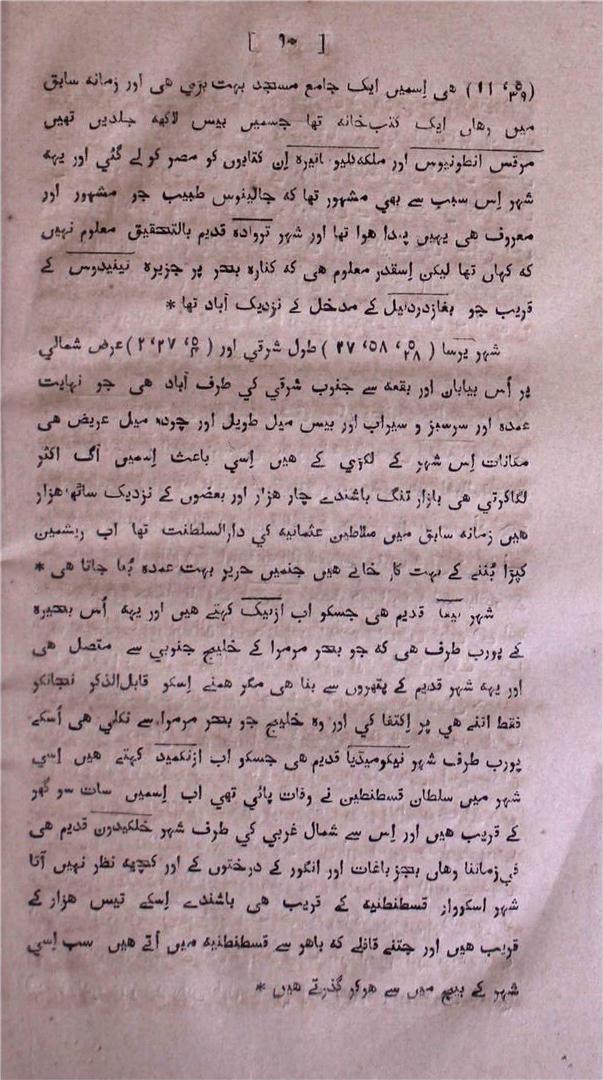 [ ٩٠ ]
(٣٩°، ١١) هي اِسميں ايک جامع مسجد بہت بڑي هي اور زمانہ سابق
ميں وهاں ايک کتب‌خانہ تها جسميں بيس لاکهہ جلديں تهيں
مرقس انطونيوس اور ملکہ‌کليو اِن کتابوں کو مصر کو لے گئي اور يہہ
شہر اِس سبب سے بهي مشہور تها کہ جالينوس طبيب جو مشہور اور
معروف هي يہيں پيدا هوا تها اور شہر تروادہ قديم بالتحقيق معلوم نہيں
کہ کہاں تها ليکن اِسقدر معلوم هي کہ کنارہ بحر پر جزيرہ تينيدوس کے
قريب جو بغازدردنيل کے مدخل کے نزديک آباد تها *
شہر برسا (٢٨°، ٥٨، ٢٧) طول شرقي اور (٤°، ٢٧، ٢) عرض شمالي
پر اُس بيابان اور بقعہ سے جنوب شرقي کي طرف آباد هي جو نہايت
عمدہ اور سرسبز و سيراب اور بيس ميل طويل اور چودہ ميل عريض هي
مکانات اِس شہر کے لکڑي کے هيں اِسي باعث اِسميں آگ اکثر
لگاکرتي هي بازار تنگ باشندے چار هزار اور بعضوں کے نزديک ساٹهہ‌هزار
هيں زمانہ سابق ميں سلاطين عثمانيہ کي دارالسلطنت تها اب ريشمين
کپڑا بُننے کے بہت کار خانے هيں جنميں حرير بہت عمدہ بُنا جاتا هي *
شہر نيقا قديم هي جسکو اب ازنيک کہتے هيں اور يہہ اُس بحيرہ
کے پورب طرف هي کہ جو بحر مرمرا کے خليج جنوبي سے متصل هي
اور يہہ شہر قديم کے پتهروں سے بنا هي مگر همنے اِسکو قابل‌الذکر نجانکر
فقط اتنے هي پر اِکتفا کي اور وہ خليج جو بحر مرمرا سے نکلي هي اُسکے
پورب طرف شہر نيکوميديا قديم هي جسکو اب ازنکميد کہتے هيں اِسي
شہر ميں سلطان قسطنطين نے وفات پائي تهي اب اِسميں سات سو گهر
کے قريب هيں اور اِس سے شمال غربي کي طرف شہر خلکيدون قديم هي
في‌زماننا وهاں بجز باغات اور انگور کے درختوں کے اور کچهہ نظر نہيں آتا
شہر اسکووار قسطنطنيہ کے قريب هي باشندے اِسکے تيس هزار کے
قريب هيں اور جتنے قافلے کہ باهر سے قسطنطنيہ ميں آتے هيں سب اِسي
شہر کے بيچ ميں سے هوکر گذرتے هيں *